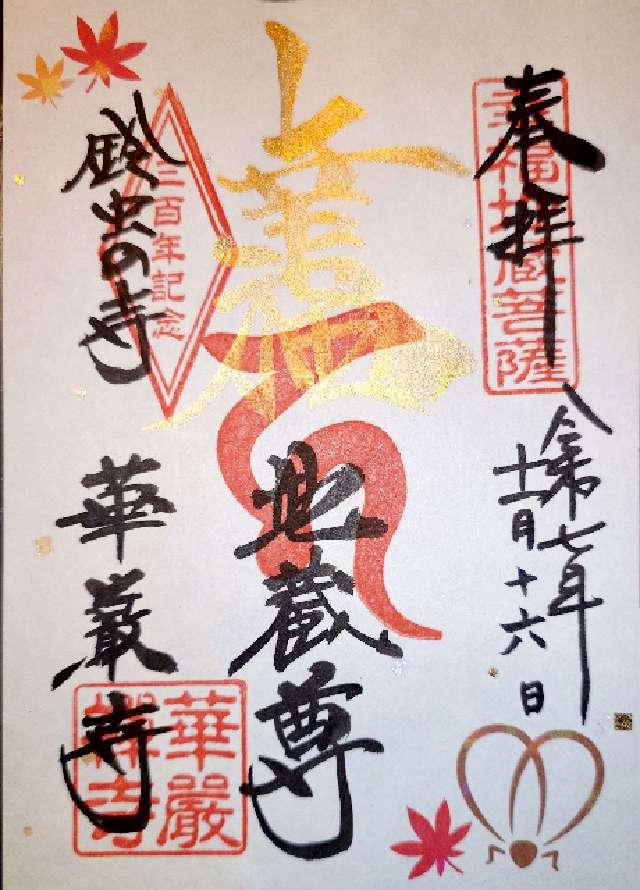 奉拝
幸福地蔵菩薩
令和七年
十一月十六日
地蔵尊
鈴虫の寺
三百年記念
華厳寺
華嚴禅寺